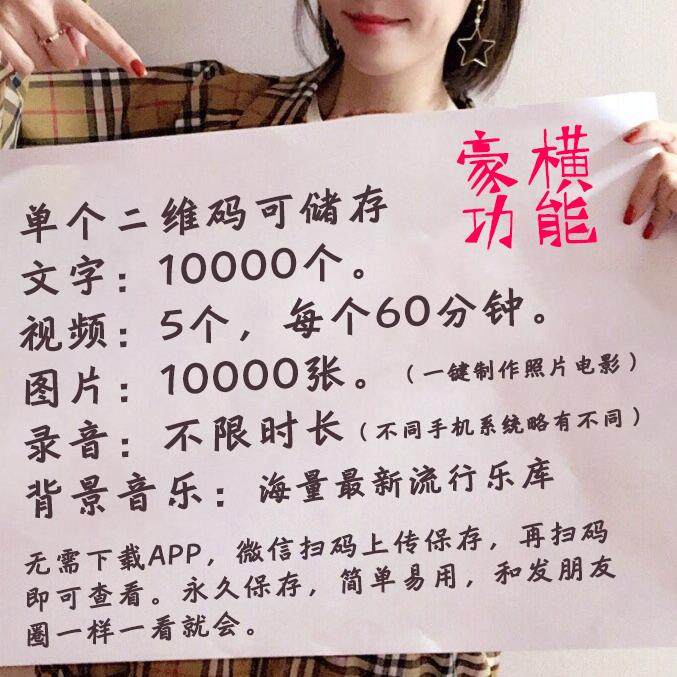 豪横
功能
单个二维码可储存
文字：10000个。
视频：5个，每个60分钟。
图片：10000张。（一键制作照片电影）
录音：不限时长（不同手机系统略有不同）
背景音乐：海量最新流行乐库
无需下载APP，微信扫码上传保存，再扫码
即可查看。永久保存，简单易用，和发朋友
圈一样一看就会。